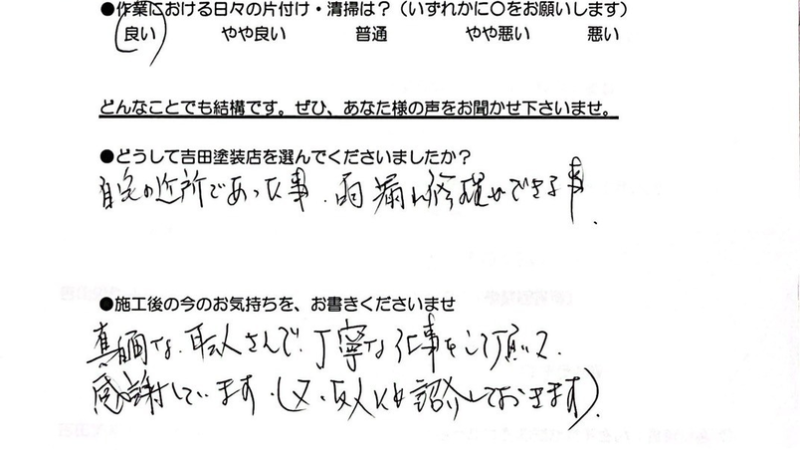 ●作業における日々の片付け・清掃は？（いずれかに〇をお願いします）
良い やや良い 普通 やや悪い 悪い
どんなことでも結構です。ぜひ、あなた様の声をお聞かせ下さいませ。
●どうして吉田塗装店を選んでくださいましたか？
自宅の近所であった事、雨漏れ修繕ができる事.
●施工後の今のお気持ちを、お書きくださいませ
真面な、職人さんで、丁寧な仕事をして頂いて、
感謝しています。(又、友人にも紹介しておきます)